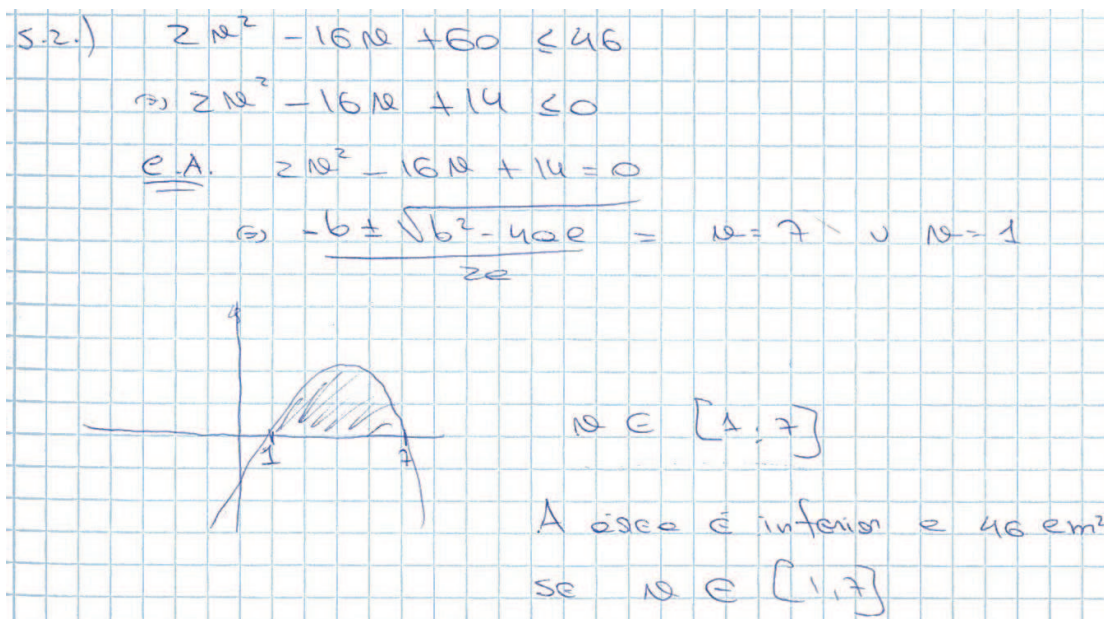 5.2.) 2x² - 16x + 60 ≤ 46
⇔ 2x² - 16x + 14 ≤ 0
C.A. 2x² - 16x + 14 = 0
⇔ (-b ± √(b² - 4ac)) / 2a = x = 7 ∪ x = 1
1 7
x ∈ [1; 7]
A área é inferior a 46 cm²
se x ∈ [1, 7]